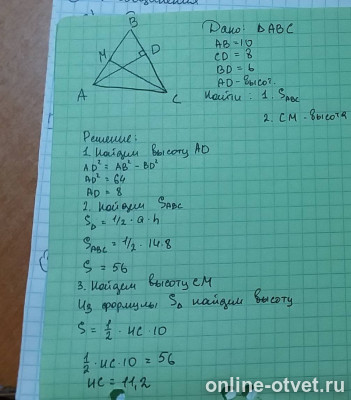 B
M
D
A
C
Дано: △ABC
AB=10
CD=8
BD=6
AD-высот.
Найти: 1. S_ABC
2. CM-высота
Решение:
1. Найдем высоту AD
AD² = AB² - BD²
AD² = 64
AD = 8
2. Найдем S_ABC
S_△ = 1/2 · a · h
S_ABC = 1/2 · 14 · 8
S = 56
3. Найдем высоту CM
Из формулы S_△ найдем высоту
S = 1/2 · MC · 10
1/2 · MC · 10 = 56
MC = 11,2
online-otvet.ru